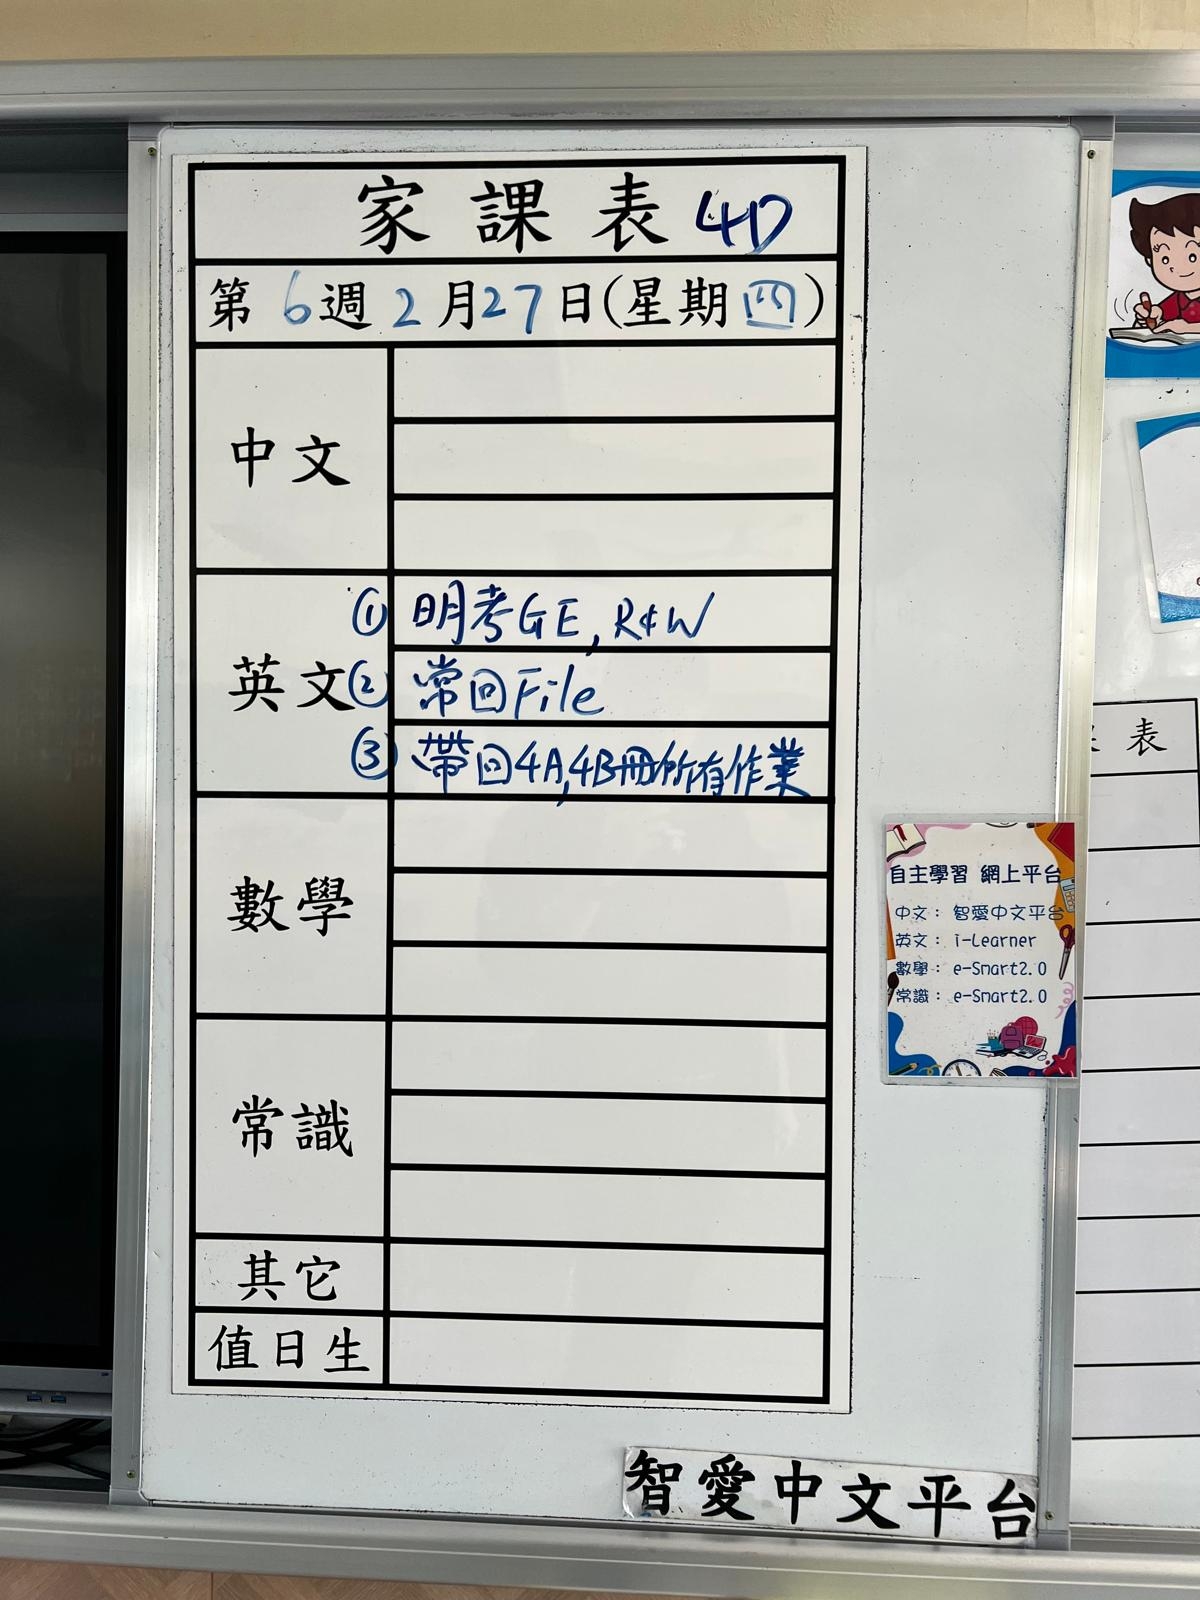 家課表 4D
第6週2月27日(星期四)
中文
英文
① 明考GE, R&W
② 常回File
③ 帶回4A,4B冊所有作業
數學
常識
其它
值日生
自主學習 網上平台
中文： 智愛中文平台
英文： i-Learner
數學： e-Smart2.0
常識： e-Smart2.0
表
智愛中文平台